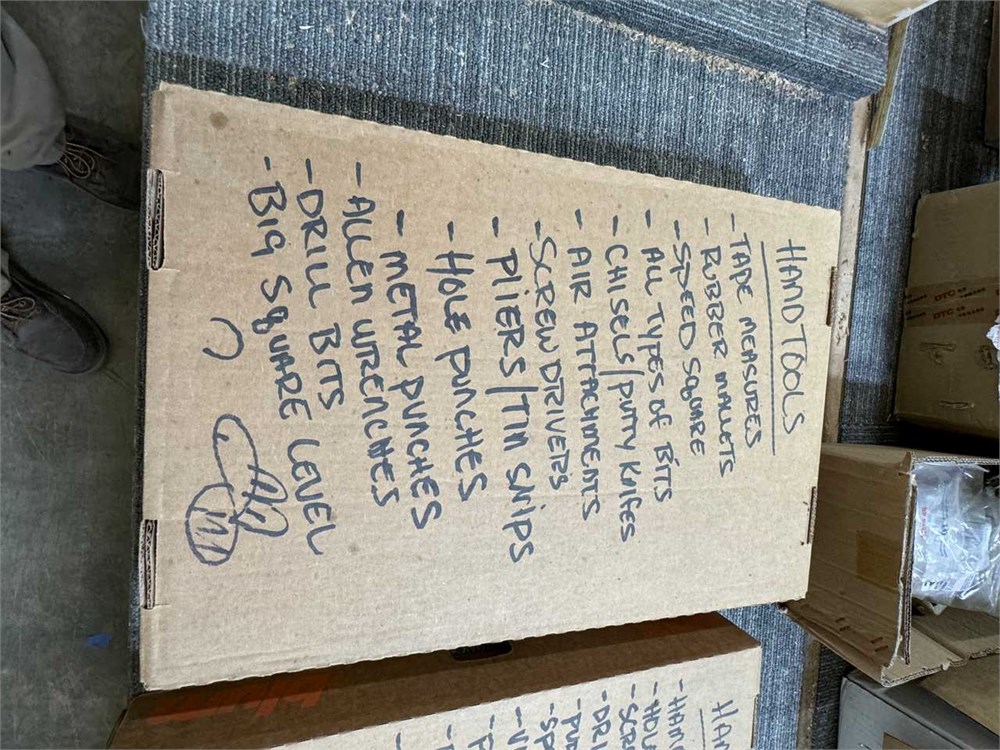 HAND TOOLS
- TAPE MEASURES
- RUBBER MALLETS
- SPEED SQUARE
- ALL TYPES OF BITS
- CHISELS/PUTTY KNIFES
- AIR ATTACHMENTS
- SCREWDTRIVETRS
- PLIERS/TIN SNIPS
- HOLE PUNCHES
- METAL PUNCHES
- ALLEN WRENCHES
- DRILL BITS
- BIG SQUARE LEVEL
HAN
- HAN
- HO
- SCR
- DRI
- PU
- SP
DTC